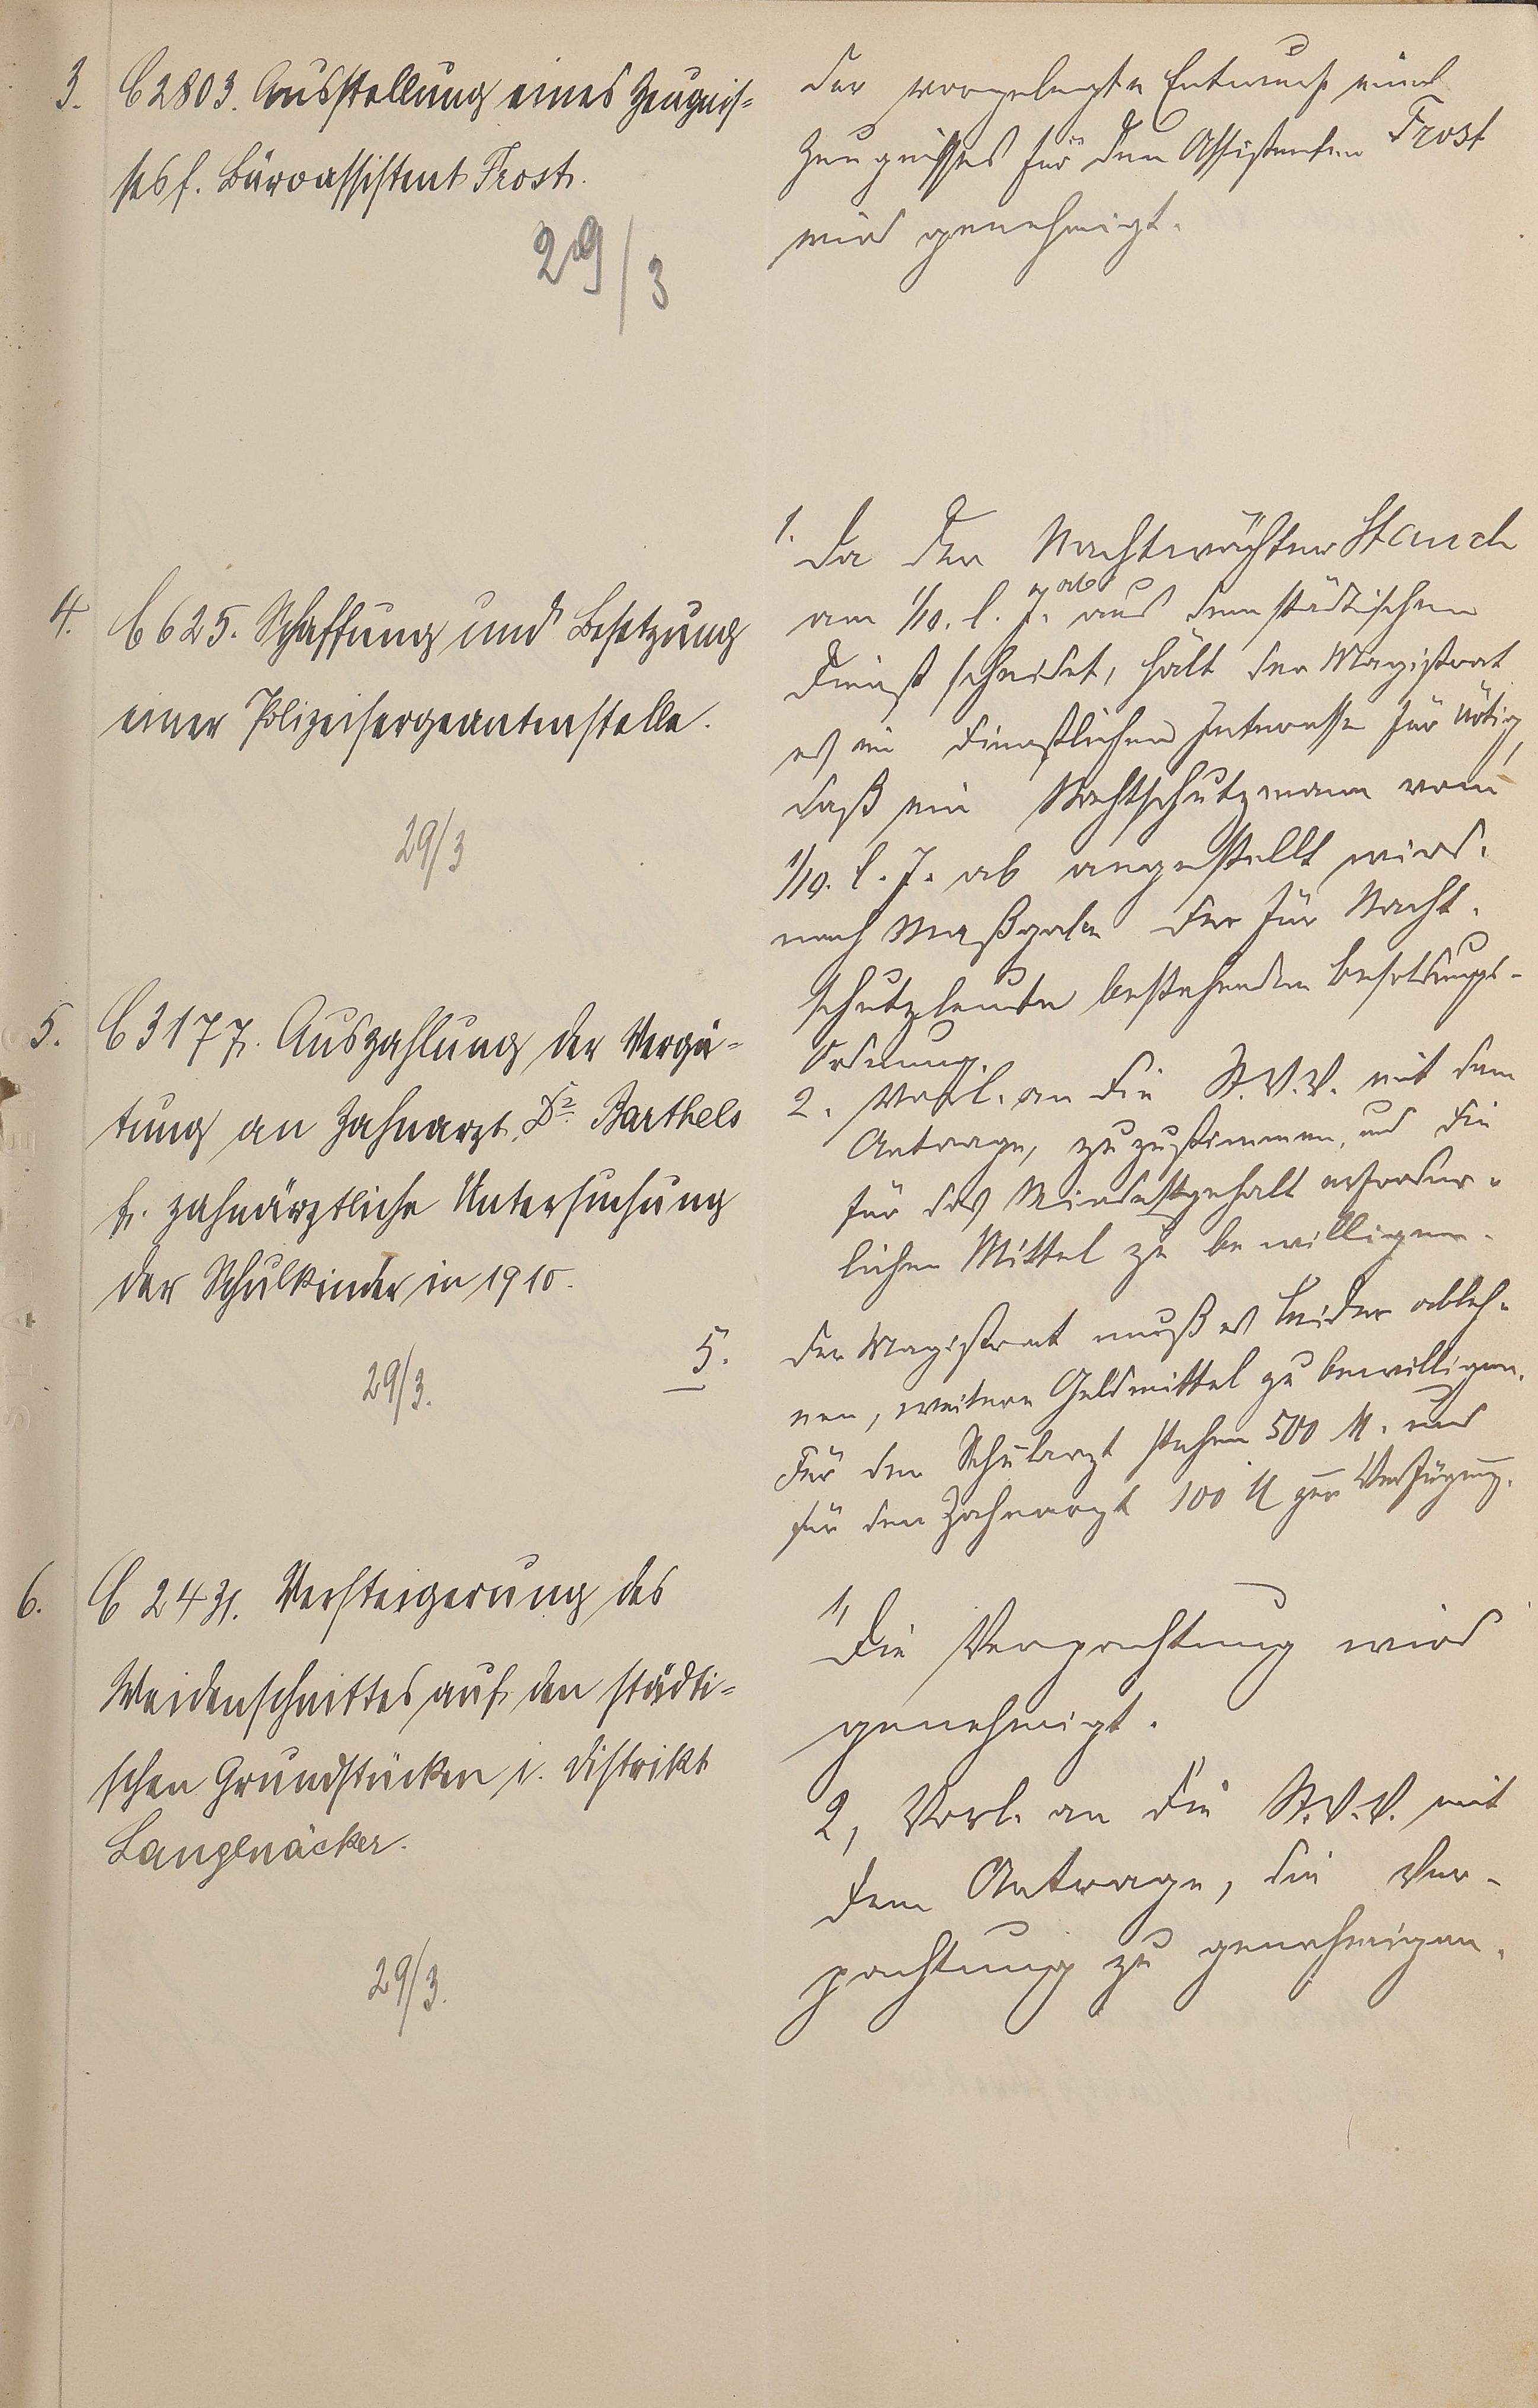 3. C 2803. Ausstellung eines Zeugnis=
ses f. Büroassistent Frost.
29/3
Der vorgelegte Entwurf eines
Zeugnisses für den Assistenten Frost
wird genehmigt.
4. C 625. Schaffung und Besetzung
einer Polizeisergeantenstelle.
29/3
1. Da der Nachtwächter Stauch
am 1/10. l. J. ab aus dem städtischen
Dienst scheidet, hält der Magistrat
es im dienstlichen Interesse für nötig,
daß ein Nachtschutzmann vom
1/10. l. J. ab angestellt wird.
nach Maßgabe der für Nacht-
schutzleute bestehenden Besoldungs-
Ordnung.
2. Vorl. an die St.V.V. mit dem
Antrage, zuzustimmen, und die
für das Mindestgehalt erforder-
lichen Mittel zu bewilligen.
5. C 3177. Auszahlung der Vergü=
tung an Zahnarzt Dr. Barthels
f. zahnärztliche Untersuchung
der Schulkinder in 1910.
29/3.
5. Der Magistrat muß es leider ableh-
nen, weitere Geldmittel zu bewilligen.
Für den Schularzt stehen 500 M. und
für den Zahnarzt 100 M zur Verfügung.
6. C 2431. Versteigerung des
Weidenschnittes auf den städti=
schen Grundstücken i. Distrikt
Langenäcker.
29/3.
1, Die Verpachtung wird
genehmigt.
2, Vorl. an die St.V.V. mit
dem Antrage, die Ver-
pachtung zu genehmigen.